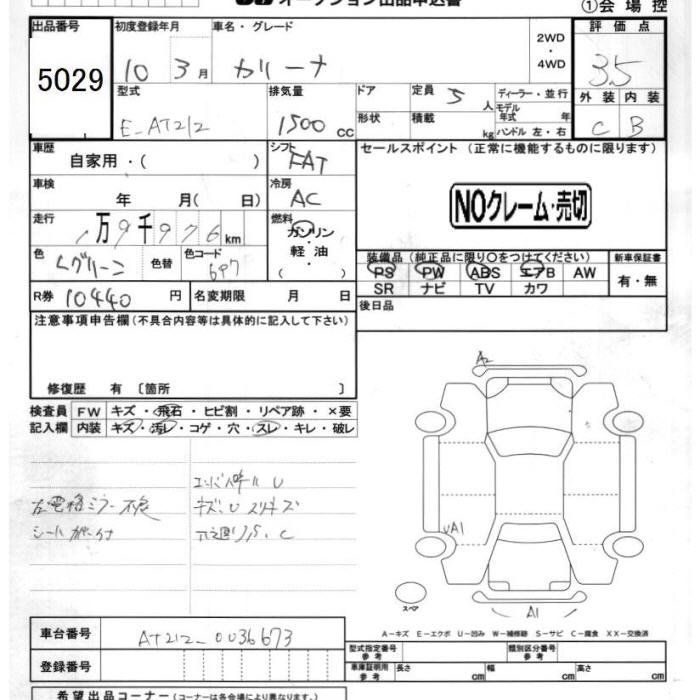 オークション出品申込書
①会場控
出品番号
5029
初度登録年月
10年3月
車名・グレード
カリーナ
2WD
・
4WD
評価点
3.5
外装 内装
C B
型式
E-AT212
排気量
1500 CC
ドア
定員
5人
形状
積載
kg
ディーラー・並行
モデル年式 年
ハンドル 左・右
車歴
自家用・( )
シフト
FAT
車検
年 月( 日)
冷房
AC
走行
1万9千976km
燃料
ガソリン
・
軽油
・
( )
色
色替
色コード
6P7
R券 10440円
名変期限 月 日
セールスポイント (正常に機能するものに限ります)
NOクレーム・売切
装備品 (純正品に限り○をつけてください)
PS PW ABS エアB AW
SR ナビ TV カワ
新車保証書
有・無
後日品
注意事項申告欄(不具合内容等は具体的に記入して下さい)
修復歴 有 〔箇所 〕
検査員 FW キズ・飛石・ヒビ割・リペア跡・×要
記入欄 内装 キズ・汚レ・コゲ・穴・スレ・キレ・破レ
U
左電格ミラー不良
キズ、U スリキズ
シート
C
A2
UA1
A1
スペア
A-キズ E-エクボ U-凹み W-補修跡 S-サビ C-腐食 XX-交換済
車台番号
AT212-0036673
登録番号
型式指定番号
参考
類別区分番号
参考
車庫証明用
参考
長さ cm
幅 cm
高さ cm
希望出品コーナー(コーナーは各会場により異なります。)